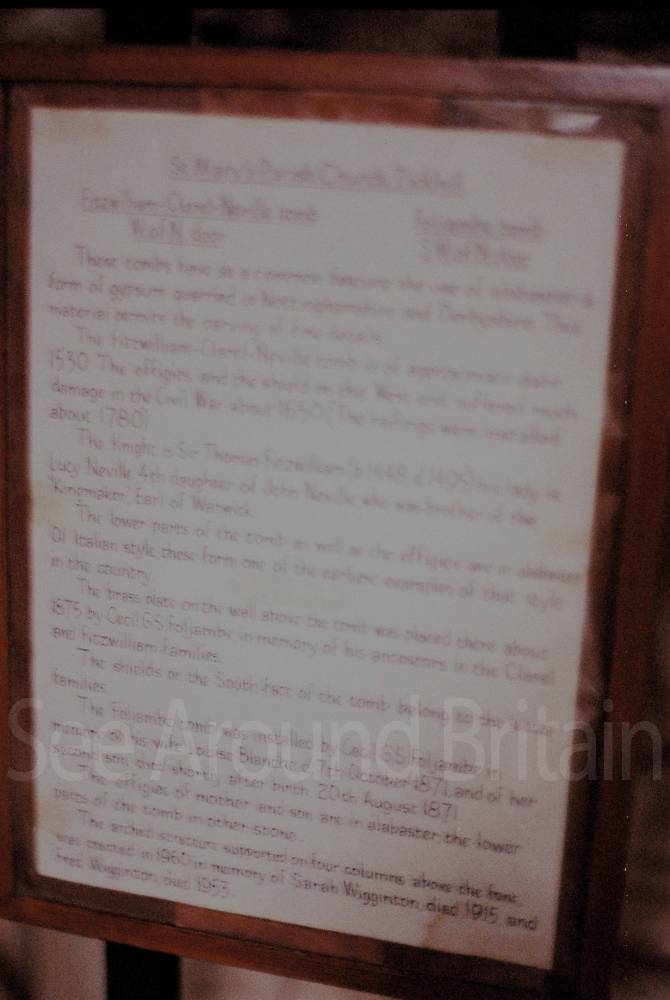 St. Mary's Parish Church, Tickhill
Fitzwilliam-Clarel-Neville tomb
W. of N. door
Foljambe tomb
S.W. of N. door
These tombs have as a common feature the use of alabaster a
form of gypsum quarried in Nottinghamshire and Derbyshire. This
material permits the carving of fine details.
The Fitzwilliam-Clarel-Neville tomb is of approximate date
1530. The effigies and the shield on the West end suffered much
damage in the Civil War, about 1650. (The railings were installed
about 1780)
The Knight is Sir Thomas Fitzwilliam his lady is
Lucy Neville 4th daughter of John Neville who was brother of the
'Kingmaker', Earl of Warwick.
The lower parts of the tomb as well as the effigies are in alabaster.
Of Italian style, these form one of the earliest examples of that style
in the country.
The brass plate on the wall above the tomb was placed there about
1875 by Cecil G.S. Foljambe in memory of his ancestors in the Clarel
and Fitzwilliam families.
The shields on the South face of the tomb belong to the
families.
The Foljambe tomb was installed by Cecil G.S. Foljambe in
memory of his wife Louise Blanche d. 7th October 1871, and of her
second son, died shortly after birth 20th August 1871.
The effigies of mother and son are in alabaster the lower
parts of the tomb in other stone.
The arched structure supported on four columns above the font
was erected in 1960 in memory of Sarah Wigginton, died 1915, and
Fred Wigginton, died 1953.
See Around Britain